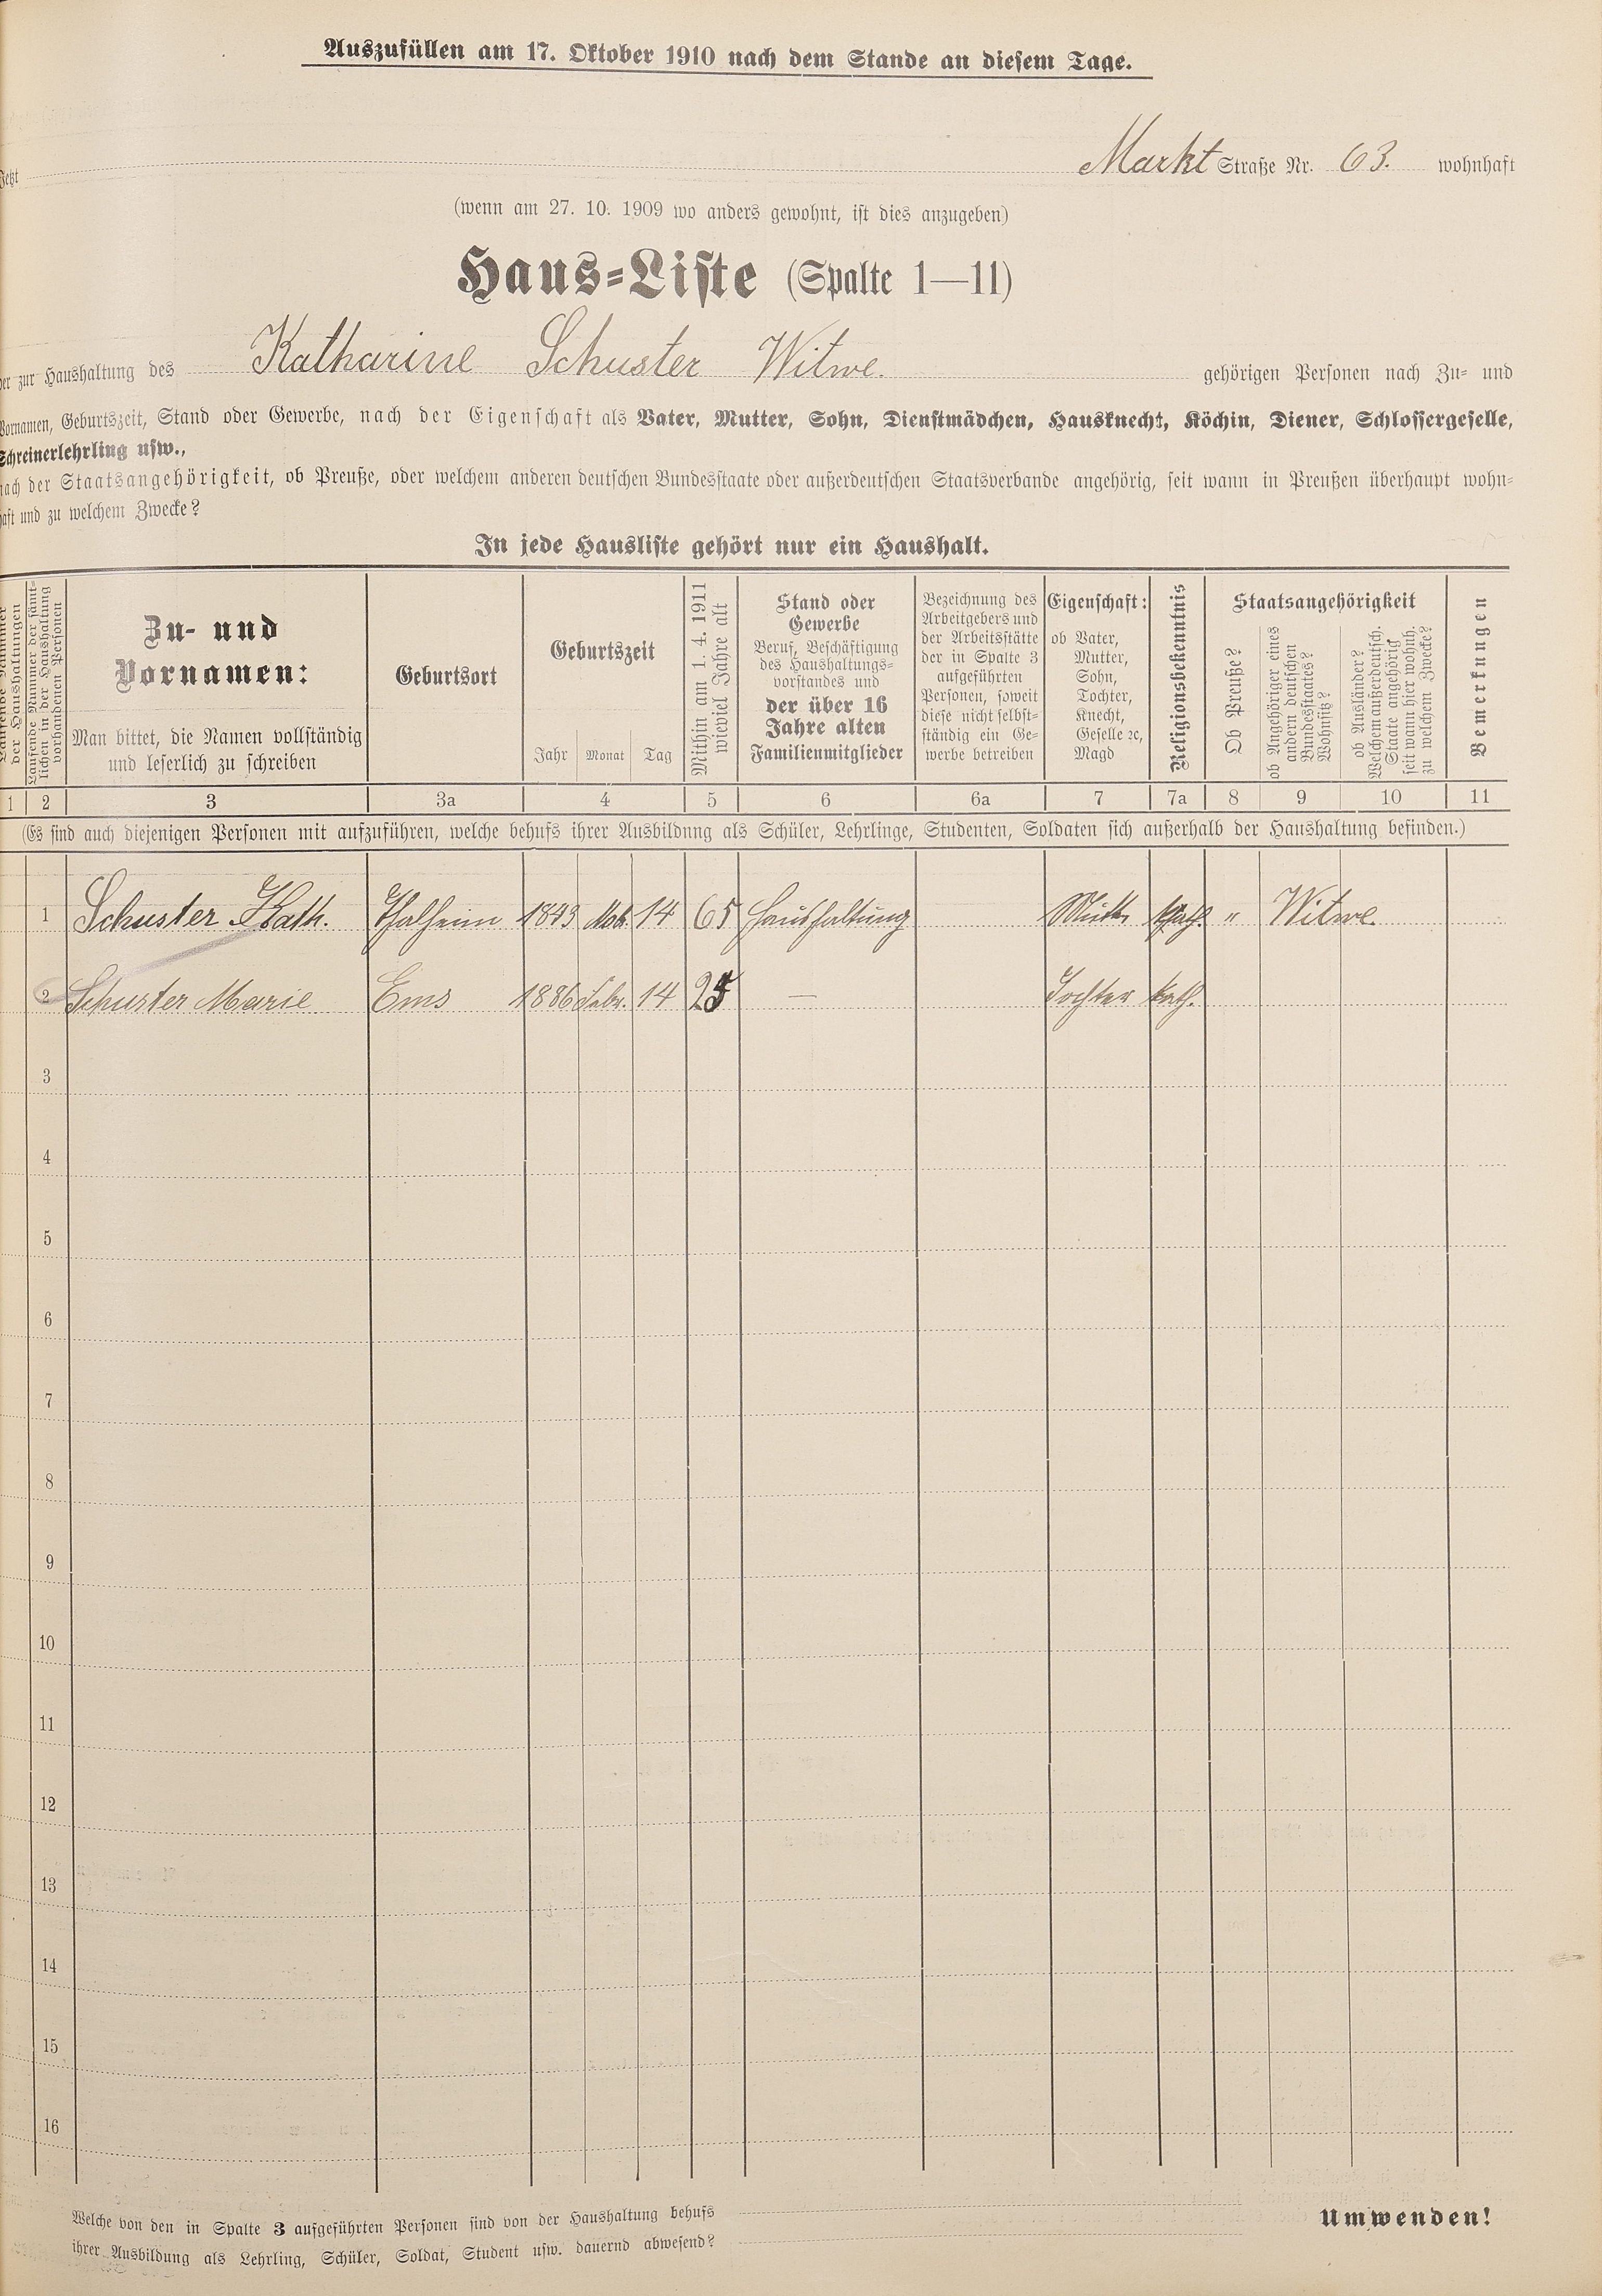 Auszufüllen am 17. Oktober 1910 nach dem Stande an diesem Tage.
Jetzt Markt Straße Nr. 63. wohnhaft
(wenn am 27. 10. 1909 wo anders gewohnt, ist dies anzugeben)
Haus-Liste (Spalte 1—11)
der zur Haushaltung des Katharine Schuster Witwe. gehörigen Personen nach Zu- und
Vornamen, Geburtszeit, Stand oder Gewerbe, nach der Eigenschaft als Vater, Mutter, Sohn, Dienstmädchen, Hausknecht, Köchin, Diener, Schlossergeselle,
Schreinerlehrling usw.,
nach der Staatsangehörigkeit, ob Preuße, oder welchem anderen deutschen Bundesstaate oder außerdeutschen Staatsverbande angehörig, seit wann in Preußen überhaupt wohn-
haft und zu welchem Zwecke?
In jede Hausliste gehört nur ein Haushalt.
Laufende Nummer
der Haushaltungen
Laufende Nummer der sämt-
lichen in der Haushaltung
vorhandenen Personen
Zu- und
Vornamen:
Man bittet, die Namen vollständig
und leserlich zu schreiben
Geburtsort
Geburtszeit
Jahr Monat Tag
Mithin am 1. 4. 1911
wieviel Jahre alt
Stand oder
Gewerbe
Beruf, Beschäftigung
des Haushaltungs-
vorstandes und
der über 16
Jahre alten
Familienmitglieder
Bezeichnung des
Arbeitgebers und
der Arbeitsstätte
der in Spalte 3
aufgeführten
Personen, soweit
diese nicht selbst-
ständig ein Ge-
werbe betreiben
Eigenschaft:
ob Vater,
Mutter,
Sohn,
Tochter,
Knecht,
Geselle ꝛc,
Magd
Religionsbekenntnis
Staatsangehörigkeit
Ob Preuße?
ob Angehöriger eines
andern deutschen
Bundesstaates?
Wohnsitz?
ob Ausländer?
Welchem außerdeutsch.
Staate angehörig
seit wann hier wohnh.
zu welchem Zwecke?
Bemerkungen
1 2 3 3a 4 5 6 6a 7 7a 8 9 10 11
(Es sind auch diejenigen Personen mit aufzuführen, welche behufs ihrer Ausbildung als Schüler, Lehrlinge, Studenten, Soldaten sich außerhalb der Haushaltung befinden.)
1 Schuster Kath. Thalheim 14 65 Haushaltung Mutter kath. " Witwe.
2 Schuster Marie Ems 1886 Febr. 14 25 — Tochter kath.
3
4
5
6
7
8
9
10
11
12
13
14
15
16
Welche von den in Spalte 3 aufgeführten Personen sind von der Haushaltung behufs
ihrer Ausbildung als Lehrling, Schüler, Soldat, Student usw. dauernd abwesend?
Umwenden!